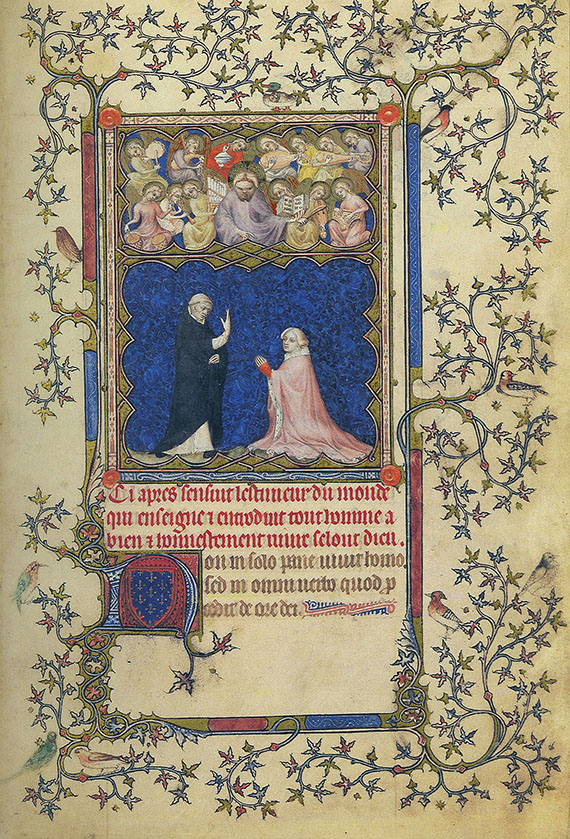 Ci apres sensuit lestimeur du monde
qui enseigne ⁊ entroduit tout homme a
bien ⁊ honnestement viure selont dieu.
Non in solo pane uiuit homo
sed in omni uerbo quod p
cedit de ore dei